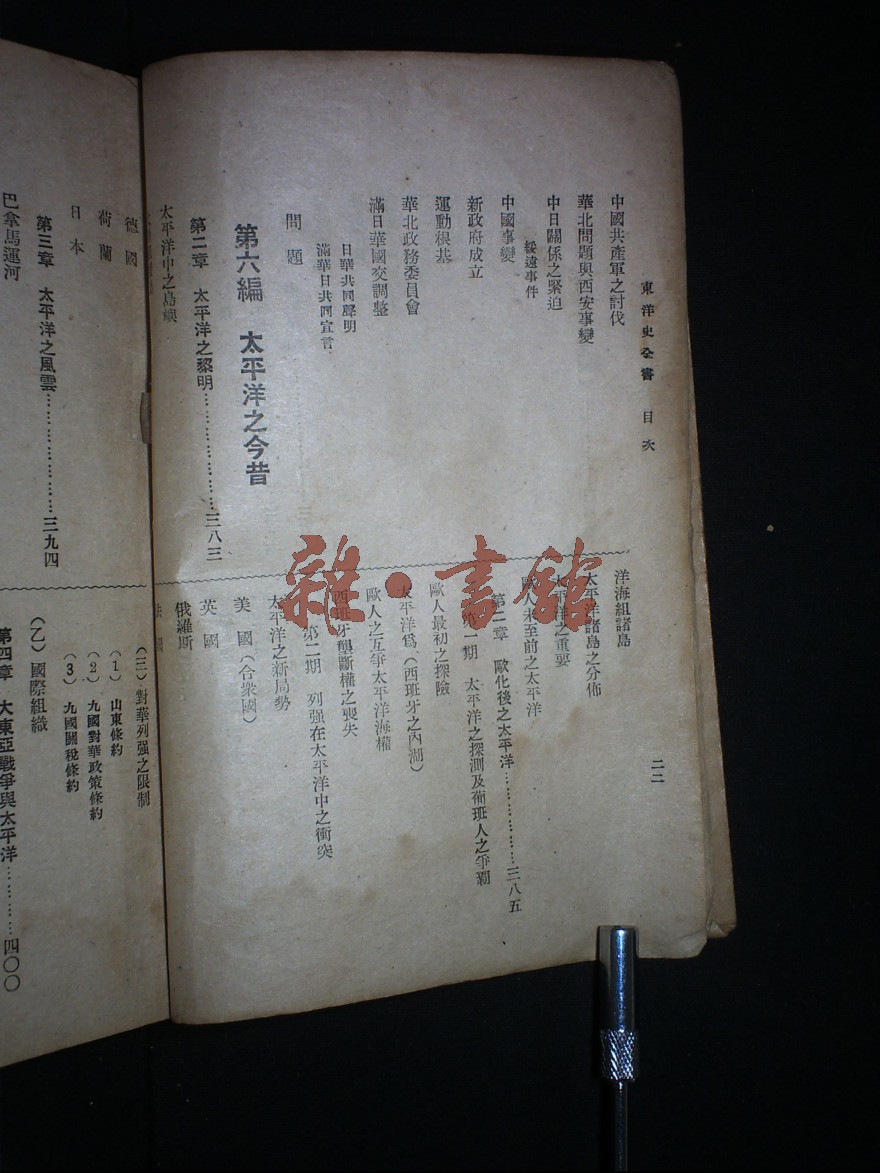 東洋史全書 目次
二二
中國共產軍之討伐
華北問題與西安事變
中日關係之緊迫
綏遠事件
中國事變
新政府成立
運動根基
華北政務委員會
滿日華國交調整
日華共同聲明
滿華日共同宣言
問題
第六編 太平洋之今昔
第二章 太平洋之黎明……………三八三
太平洋中之島嶼
洋海組諸島
太平洋諸島之分佈
太平洋之重要
歐人未至前之太平洋
第二章 歐化後之太平洋……………三八五
第一期 太平洋之探測及葡班人之爭霸
歐人最初之探險
太平洋爲（西班牙之內湖）
歐人之互爭太平洋海權
西班牙壟斷權之喪失
第二期 列强在太平洋中之衝突
太平洋之新局勢
美國（合衆國）
英國
俄羅斯
法國
德國
荷蘭
日本
第三章 太平洋之風雲……………三九四
巴拿馬運河
（三）對華列强之限制
（1）山東條約
（2）九國對華政策條約
（3）九國關稅條約
（乙）國際組織
第四章 大東亞戰爭與太平洋…………四〇〇
雜·書館